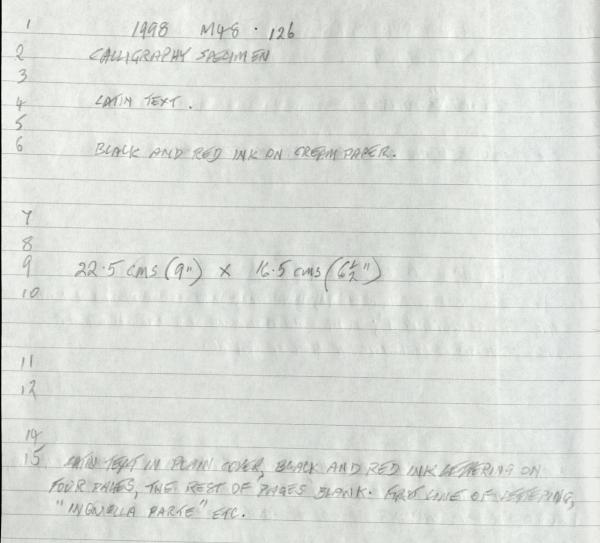 1 1998 M48 · 126
2 CALLIGRAPHY SPECIMEN
3
4 LATIN TEXT.
5
6 BLACK AND RED INK ON CREAM PAPER.
7
8
9 22.5 cms (9") × 16.5 cms (6½")
10
11
12
14
15 LATIN TEXT IN PLAIN COVER, BLACK AND RED INK LETTERING ON
FOUR PAGES, THE REST OF PAGES BLANK. FIRST LINE OF LETTERING,
"INQUELLA PARTE" ETC.